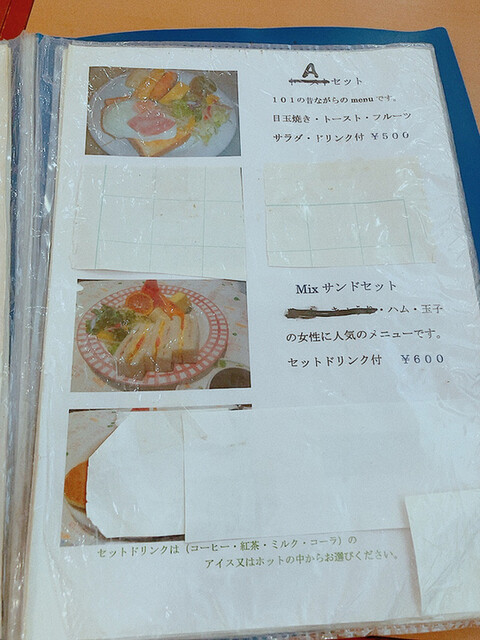 Aセット
101の昔ながらのmenuです。
目玉焼き・トースト・フルーツ
サラダ・ドリンク付 ¥500
Mixサンドセット
・ハム・玉子
の女性に人気のメニューです。
セットドリンク付 ¥600
セットドリンクは(コーヒー・紅茶・ミルク・コーラ)の
アイス又はホットの中からお選びください。